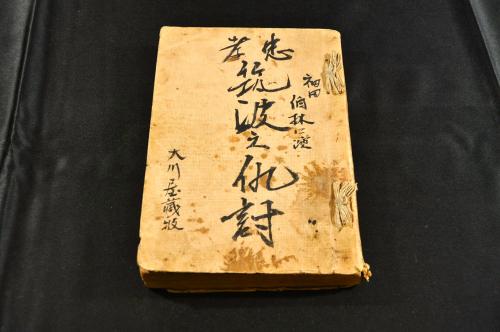 神田
伯林口演
忠孝
筑波之仇討
大川屋蔵版